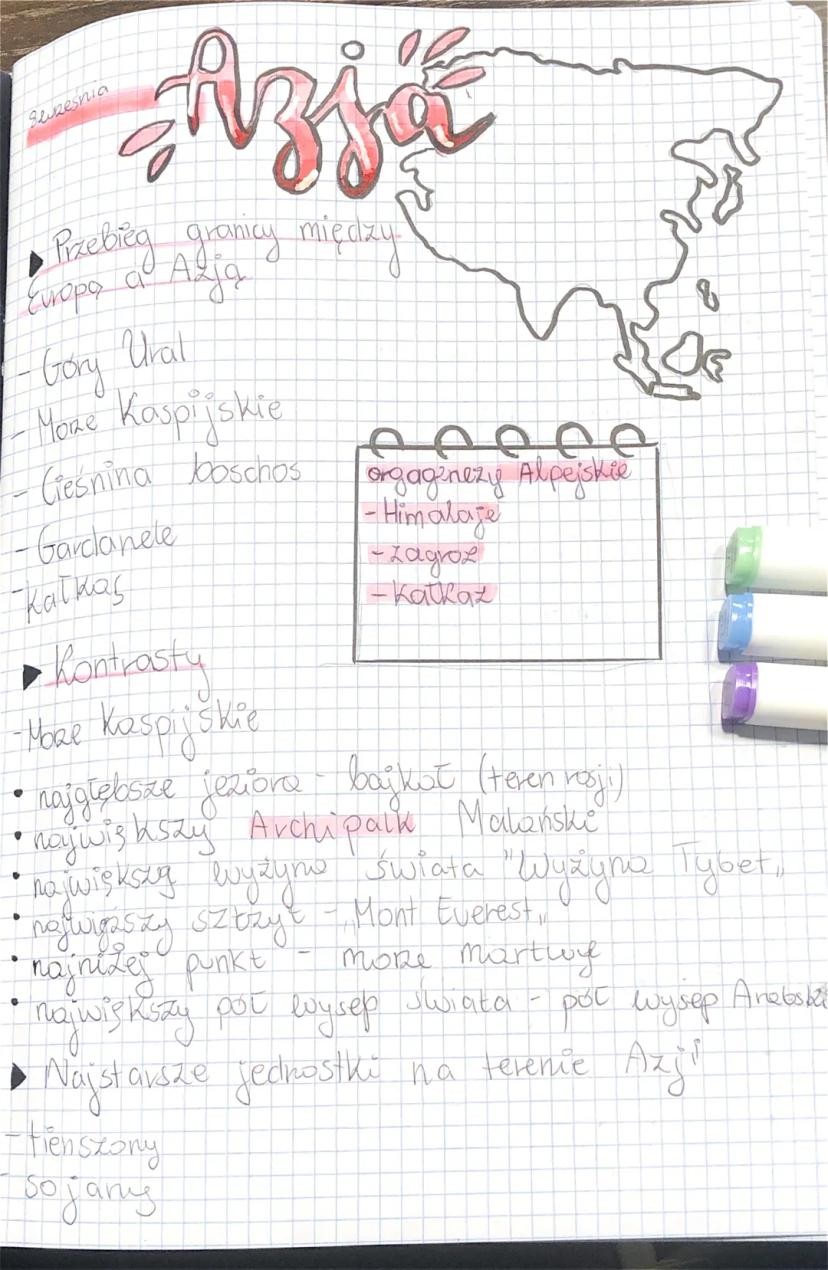 8 września
Azja
Przebieg granicy między
Europą a Azją
- Góry Ural
- Morze Kaspijskie
- Cieśnina boschos
- Gardanele
- Kałkas
orgagenezy Alpejskie
- Himalaje
- Zagroz
- Kałkaz
Kontrasty
- Morze Kaspijskie
• najgłębsze jezioro - bajkał (teren rosji)
• największy Archipalk Malański
• największą wyżyna świata "Wyżyna Tybet„
• najwięszy sztzyt - „Mont Everest„
• najniżej punkt - morze martwe
• największy pół wysep świata - pół wysep Arabski
Najstarsze jednostki na terenie Azji
- tienszony
- sojany